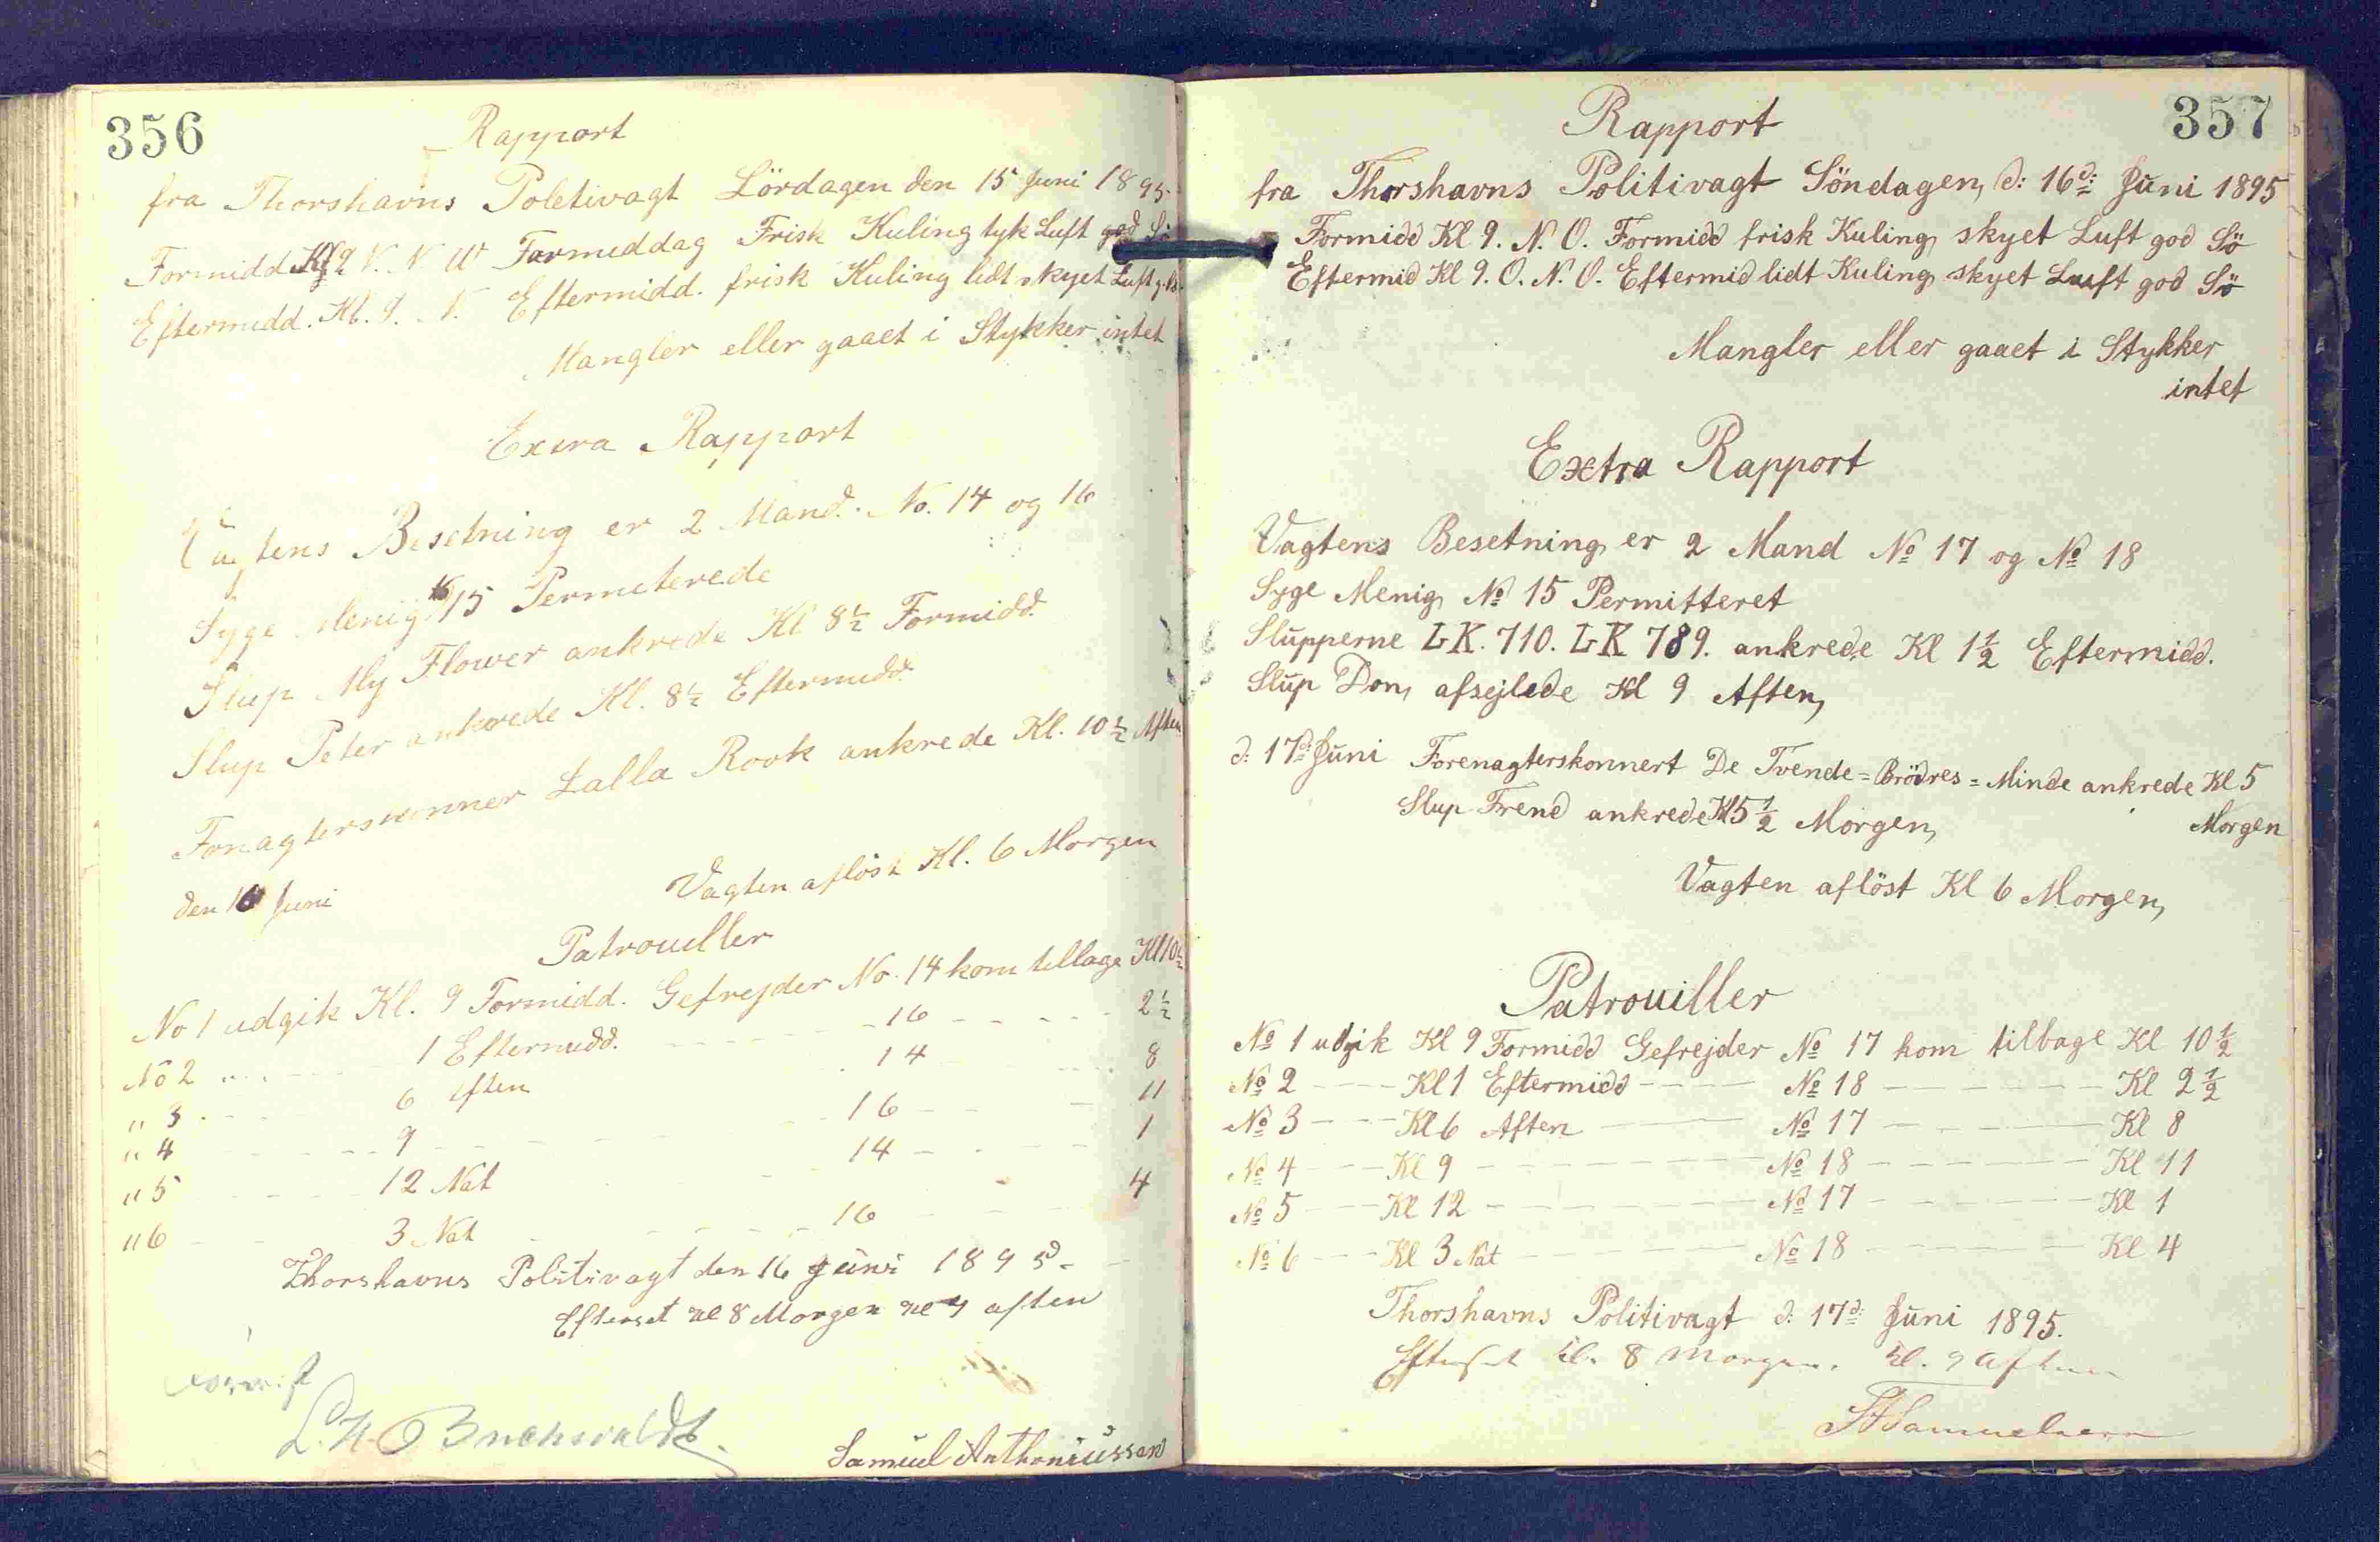 356
Rapport
fra Thorshavns Poletivagt Lördagen den 15 Juni 1895.
Formidd Kl 9 V. N. W Formeddag Frisk Kuling tyk Luft god Sö
Eftermidd. Kl. 9. N. Eftermidd. frisk Kuling lidt skyet Luft
Mangler eller gaaet i Stykker intet
Extra Rapport
Vagtens Besetning er 2 Mand. No. 14 og 16
Syge Menig No 15 Permeterede
Slup My Flower ankrede Kl 8½ Formidd.
Slup Peter ankrede Kl. 8½ Eftermidd.
Lalla Rook ankrede Kl. 10½ Aften
den 16 Juni
Vagten aflöst Kl. 6 Morgen
Patrouller
No 1 udgik Kl. 9 Formidd. Gefrejder No. 14 kom tilbage Kl 10½
No 2 1 Eftermidd. 16 2½
" 3 6 Aften 14 8
" 4 9 16 11
" 5 12 Nat 14 1
" 6 3 Nat 16 4
Thorshavns Politivagt den 16 Juni 1895
Efterset Kl 8 Morgen Kl 9 aften
L. H. Buchwaldt.
Samuel Anthoniussen
357
Rapport
fra Thorshavns Politivagt Söndagen, d: 16d: Juni 1895
Formidd Kl 9. N. O. Formidd frisk Kuling, skyet Luft god Sö
Eftermid Kl 9. O. N. O. Eftermid lidt Kuling, skyet Luft god Sö
Mangler eller gaaet i Stykker
intet
Extra Rapport
Vagtens Besetning er 2 Mand No 17 og No 18
Syge Menig No 15 Permitteret
Slupperne LK. 710. LK 789. ankrede Kl 1½ Eftermidd.
Slup Don, afsejlede Kl 9 Aften,
d: 17d: Juni Forenagterskonnert De Tvende=Brödres=Minde ankrede Kl 5
Morgen
Slup Frend ankrede Kl 5½ Morgen,
Vagten aflöst Kl 6 Morgen,
Patrouiller
No 1 udgik Kl 9 Formidd Gefrejder No 17 kom tilbage Kl 10½
No 2 Kl 1 Eftermidd No 18 Kl 2½
No 3 Kl 6 Aften No 17 Kl 8
No 4 Kl 9 No 18 Kl 11
No 5 Kl 12 No 17 Kl 1
No 6 Kl 3 Nat No 18 Kl 4
Thorshavns Politivagt d: 17d: Juni 1895.
Efterset Kl. 8 Morgen. Kl. 9 Aften
Samuelsen